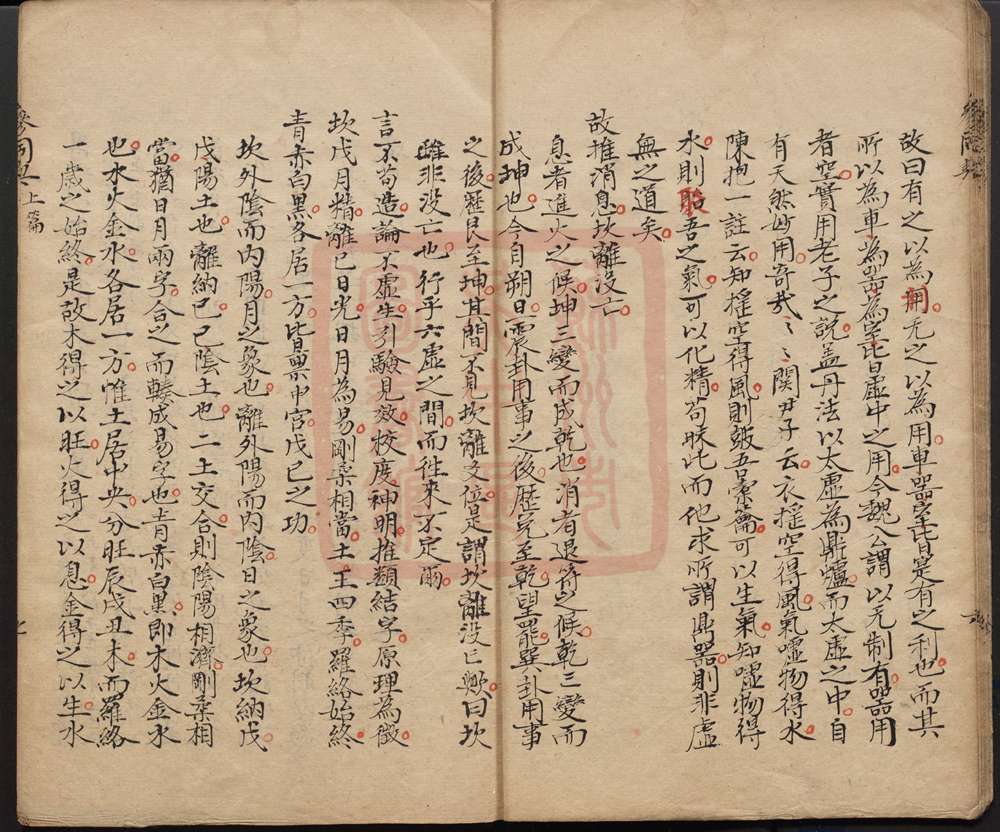 故曰有之以為利无之以為用車器室皆是有之利也而其
所以為車為器為室皆曰虛中之用今魏公謂以无制有器用
者空實用老子之說盖丹法以太虛為鼎爐而太虛之中自
有天然妙用奇哉〻〻關尹子云衣搖空得風氣噓物得水
陳抱一註云知搖空得風則皷吾橐籥可以生氣知噓物得
水則 吾之氣可以化精苟昧此而他求所謂鼎器則非虛
無之道矣
故推消息坎離没亡
息者進火之候坤三變而成乾也消者退符之候乾三變而
成坤也今自朔旦震卦用事之後歷兌至乾望罷巽卦用事
之後歷艮至坤其間不見坎離爻位是謂坎離没亡鄭曰坎
離非没亡也行乎六虛之間而往來不定爾
言不苟造論不虛生引驗見效校度神明推類結字原理為徴
坎戊月精離已日光日月為易剛柔相當土王四季羅絡始終
青赤白黑各居一方皆禀中宮戊已之功
坎外陰而内陽月之象也離外陽而内陰日之象也坎納戊
戊陽土也離納已已陰土也二土交合則陰陽相濟剛柔相
當猶日月兩字合之而轉成易字也青赤白黑即木火金水
也木火金水各居一方惟土居中央分旺辰戌丑未而羅絡
一歲之始終是故木得之以旺火得之以息金得之以生水
參同契
上篇